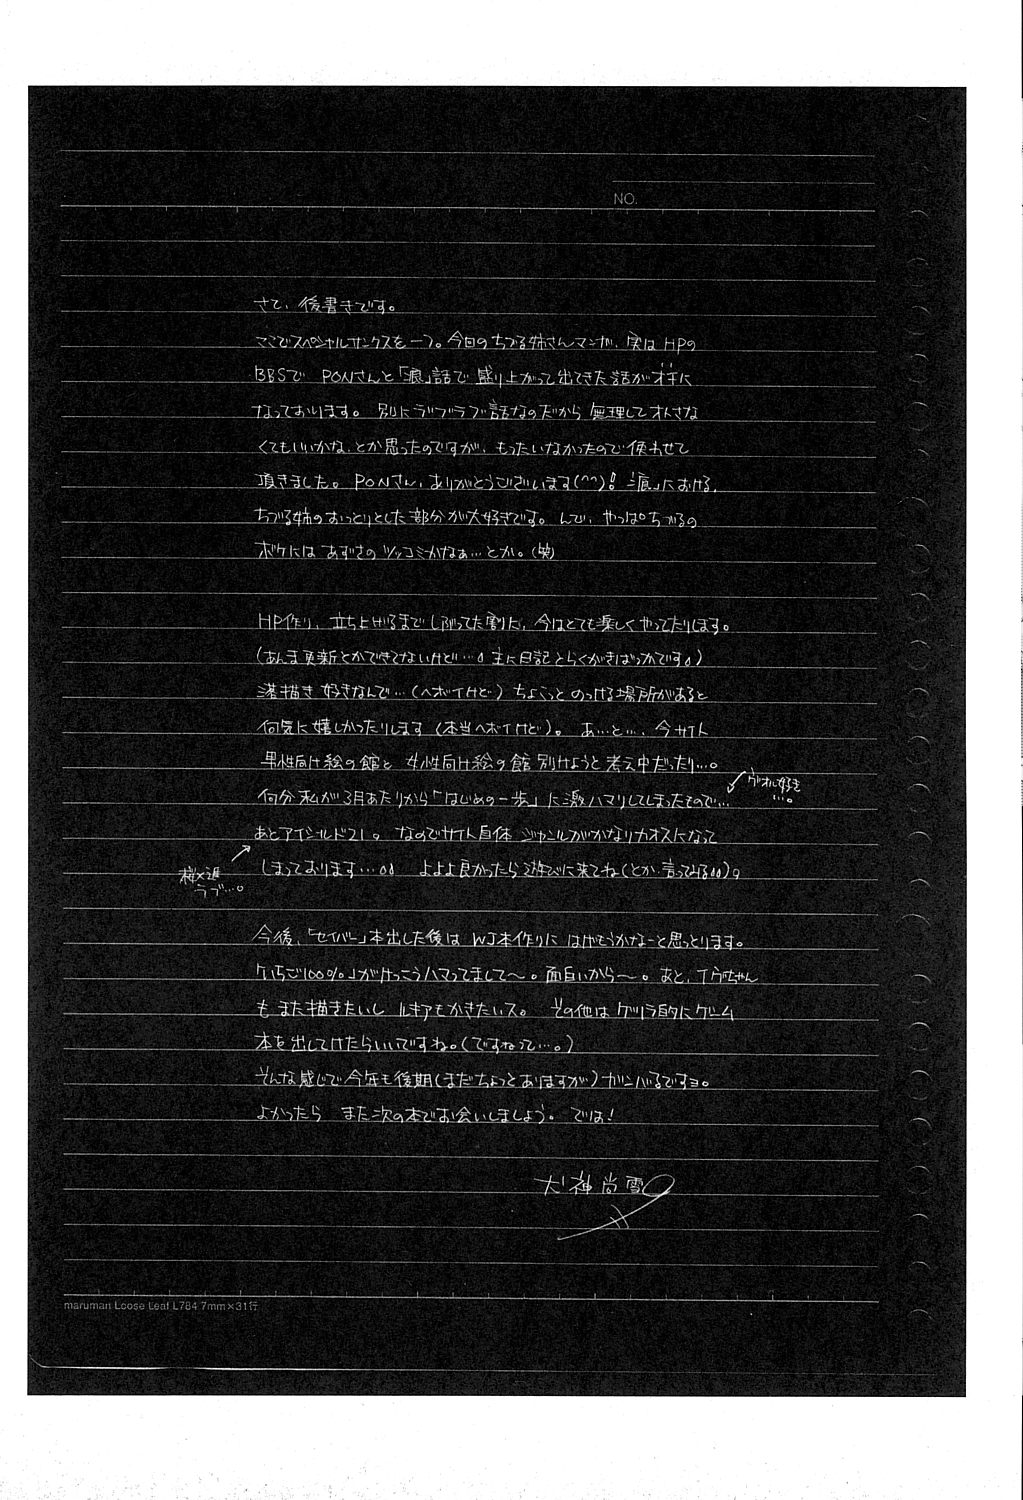 NO.
さて、後書きです。
ここでスペシャルサンクスを一つ。今回のちづる姉さんマンガ、実はHPの
BBSで PONさんと「痕」話で 盛り上がって出てきた話がオチに
なっております。 別にラブラブ話なのだから 無理してオトさな
くてもいいかな、とか思ったのですが、もったいなかったので使わせて
頂きました。PONさん、ありがとうございます(^^)! 「痕」における、
ちづる姉のおっとりとした部分が大好きです。んで、やっぱちづるの
ボケには あずさのツッコミかなぁ…とか。(笑)
HP作り、立ち上げるまでしぶってた割に、今はとても楽しくやってたりします。
(あんま更新とかできてないけど… 主に日記とらくがきばっかです)
落描き 好きなんで…(ヘボイけど) ちょこっと のっける場所があると
何気に嬉しかったりします (本当ヘボイけど)。 あ…と…、今サイト
男性向け絵の館と 女性向け絵の館 別けようと考え中だったり…。
何分私が3月あたりから「はじめの一歩」に激ハマリしてしまったもので…
ヴォル好き
…。
あとアイシールド21。 なのでサイト自体 ジャンルがかなりカオスになって
桜×進
ラブ…。
しまっております… よよよ良かったら遊びに来てね(とか言ってみる)。
今後、「セイバー」本出した後は WJ本作りに はげもうかなーと思っとります。
「いちご100%」がけっこうハマってまして〜。面白いから〜。あと、イヴちゃん
も また描きたいし ルキアもかきたいス。 その他は ゲリラ的にゲーム
本を出してけたらいいですね。(ですねって…。)
そんな感じで今年も後期(まだちょっとありますが)ガンバるですヨ。
よかったら また次の本でお会いしましょう。 では!
犬神尚雪
maruman Loose Leaf L784 7mm×31行